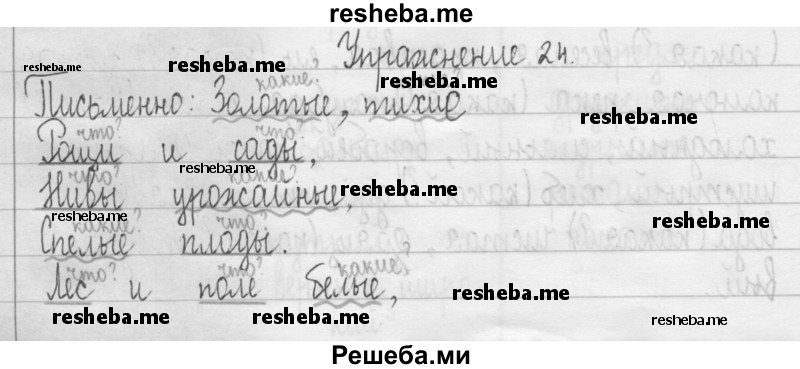 resheba.me
Упражнение 24.
resheba.me resheba.me какие? resheba.me
Письменно: Золотые, тихие resheba.me
что? что?
Рощи и сады,
resheba.me resheba.me
что? какие?
Нивы урожайные, resheba.me
resheba.me какие? что? resheba.me
Спелые плоды.
что? что? какие?
Лес и поле белые, resheba.me
resheba.me resheba.me resheba.me
Решеба.ми